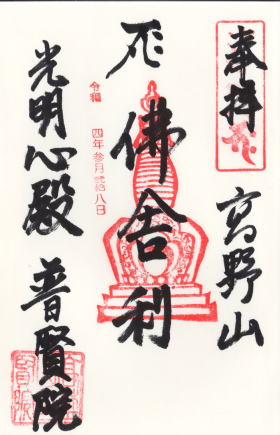 奉拝
高野山
佛舎利
令和四年参月弐拾八日
光明心殿 普賢院